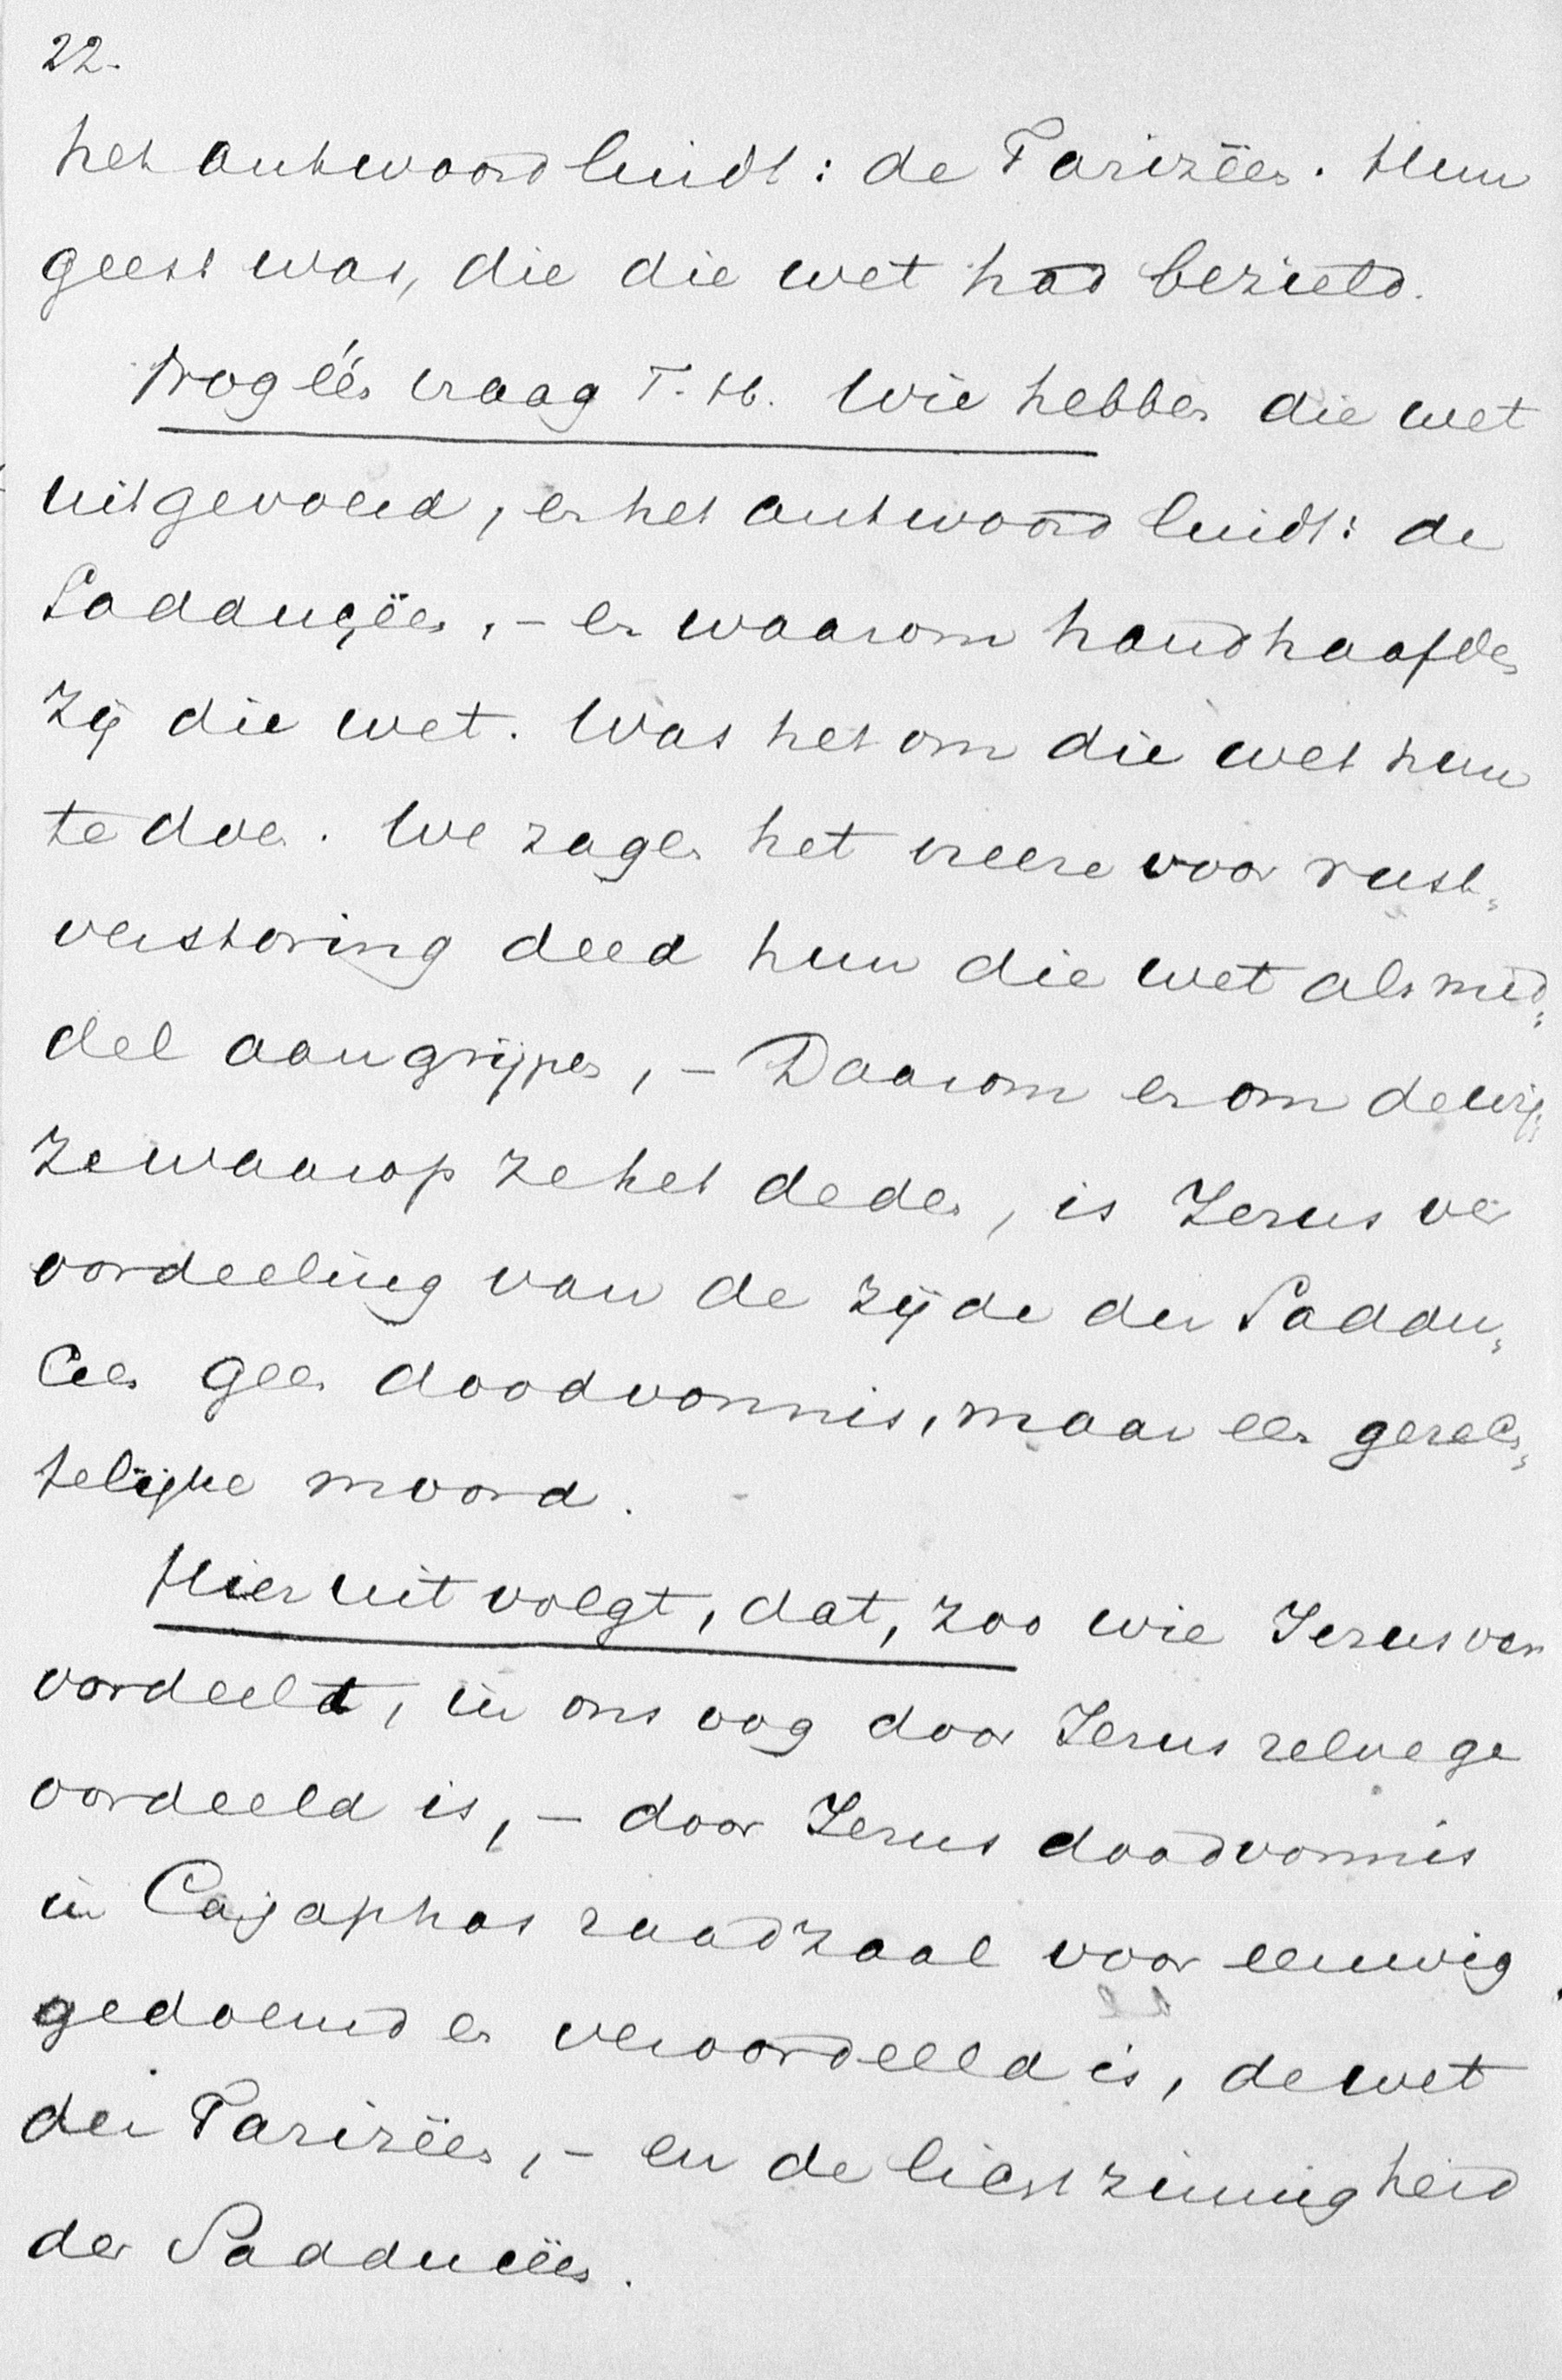 22.
het antwoord luidt: de Farizëen. Hun
geest was, die die wet had bezield.
Nog één vraag T. H. Wie hebben die wet
uitgevoerd, en het antwoord luidt: de
Sadduçëen, – en waarom handhaafden
zij die wet. Was het om die wet hun
te doen. We zagen het vreeze voor rust„
verstoring deed hun die wet als mid„
del aangrijpen, – Daarom en om de wij„
ze waarop ze het deden, is Jezus ver
oordeeling van de zijde der Saddu„
ceen geen doodvonnis, maar een gerech„
telijke moord.
Hieruit volgt, dat, zoo wie Jezus ver
oordeelt, in ons oog door Jezus zelve ge
oordeeld is, – door Jezus doodvonnis
in Cajaphas raadzaal voor eeuwig
gedoemd en veroordeeld is, de wet
der Farizëen, – en de lichtzinnigheid
der Sadducëen.